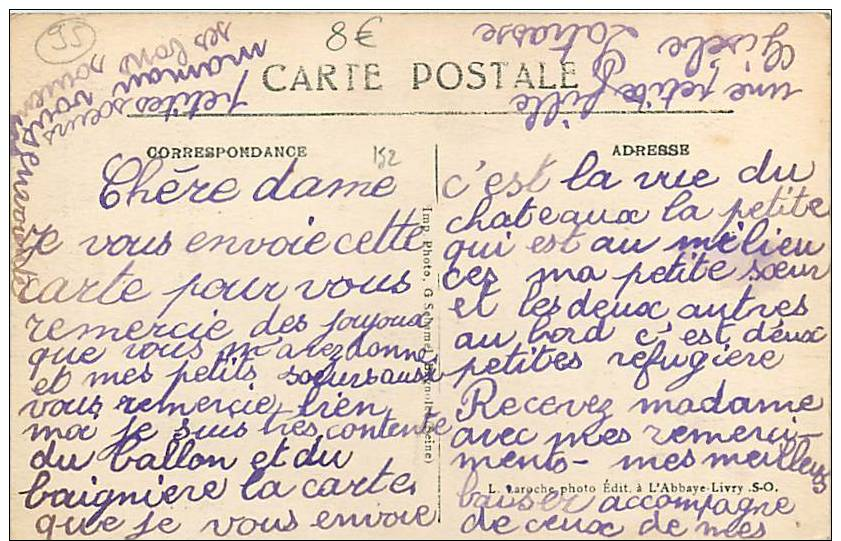 95
8€
CARTE POSTALE
CORRESPONDANCE
152
ADRESSE
Chére dame
Je vous envoie cette
carte pour vous
remercie des joujoux
que vous m'avez donné
et mes petits soeurs aussi
vous remercie bien
moi je suis très contente
du ballon et du
baigniere la carte
que je vous envoie
c'est la vue du
chateaux la petite
qui est au milieu
ces ma petite sœur
et les deux autres
au bord c'est deux
petites refugiere
Recevez madame
avec mes remerci-
ments- mes meilleurs
baiser accompagne
de ceux de mes
petites soeurs
maman vous envoie
ses bons souvenirs
une petite fille
Gisèle
Imp. Photo. G
L. Laroche photo Édit. à L'Abbaye-Livry .S-O.